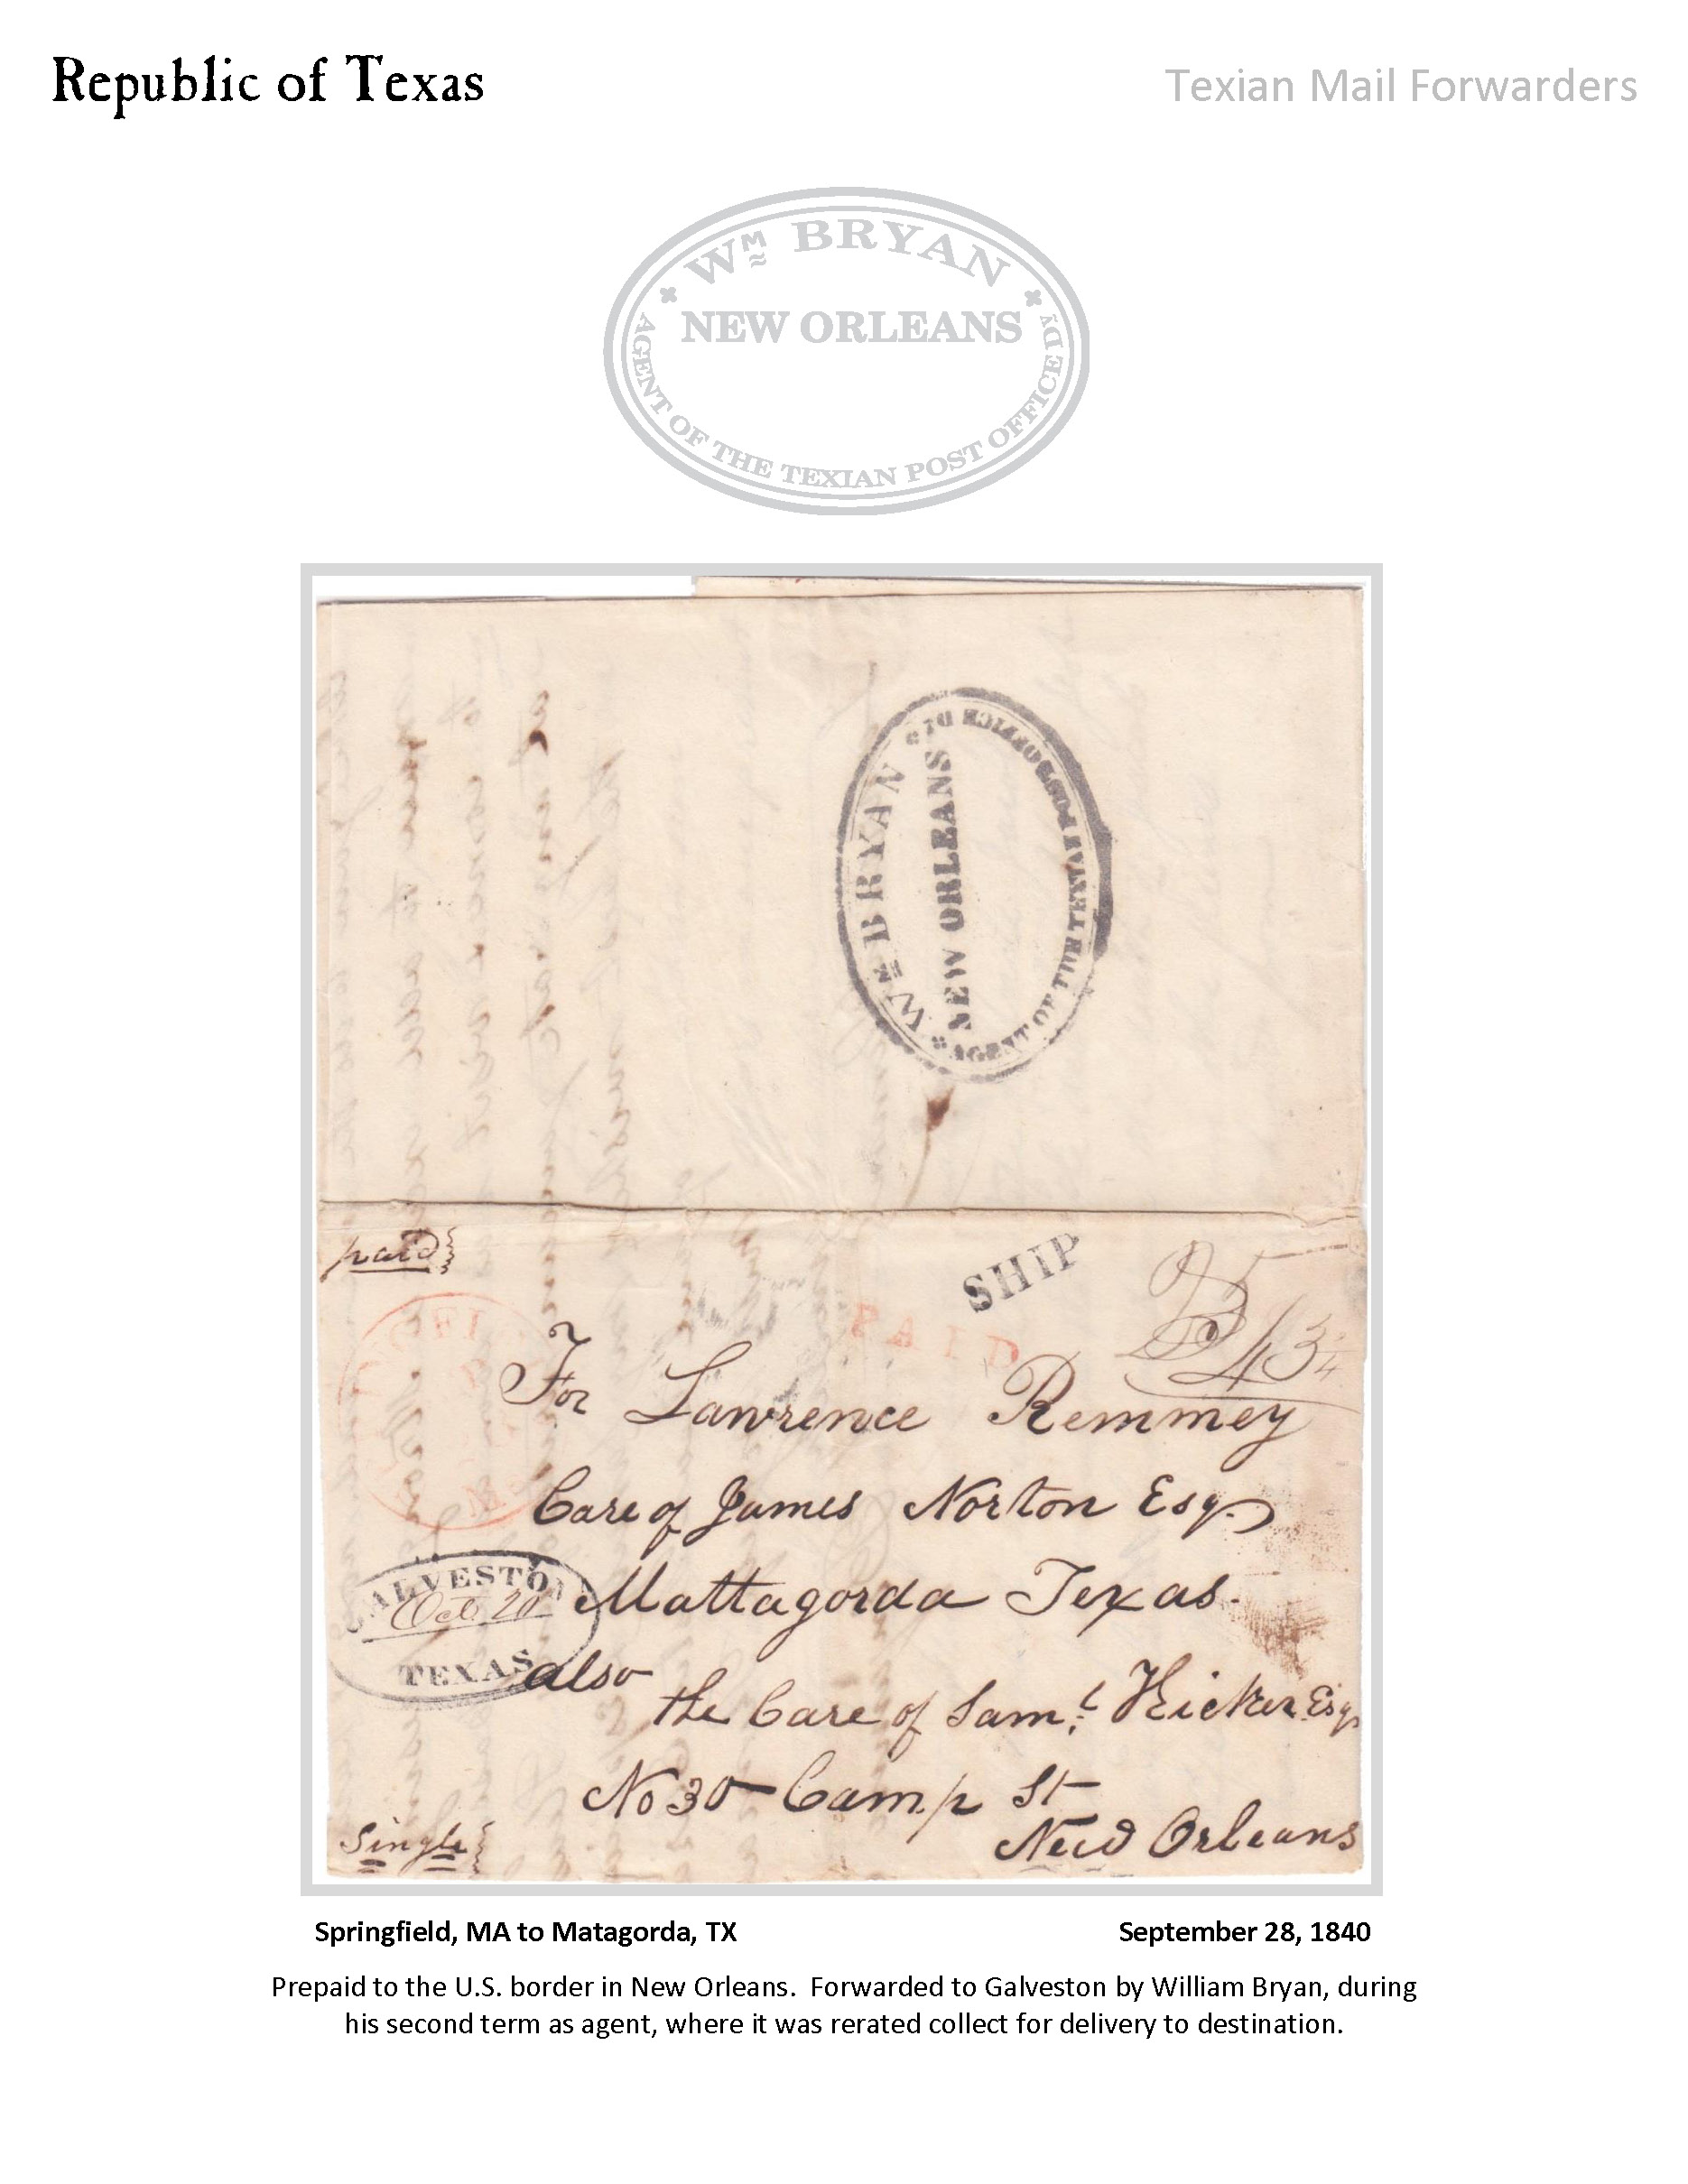 Republic of Texas
Texian Mail Forwarders
Wm BRYAN
NEW ORLEANS
AGENT OF THE TEXIAN POST OFFICE Dy
Wm BRYAN
NEW ORLEANS
AGENT OF THE TEXIAN POST OFFICE
paid
SHIP
PAID
25
43 3/4
For Lawrence Remmey
Care of James Norton Esq.
GALVESTON
Oct 20
TEXAS
Mattagorda Texas.
also
the Care of Saml. Hicker Esqr
No 30 Camp St
New Orleans
Single
Springfield, MA to Matagorda, TX
September 28, 1840
Prepaid to the U.S. border in New Orleans. Forwarded to Galveston by William Bryan, during
his second term as agent, where it was rerated collect for delivery to destination.